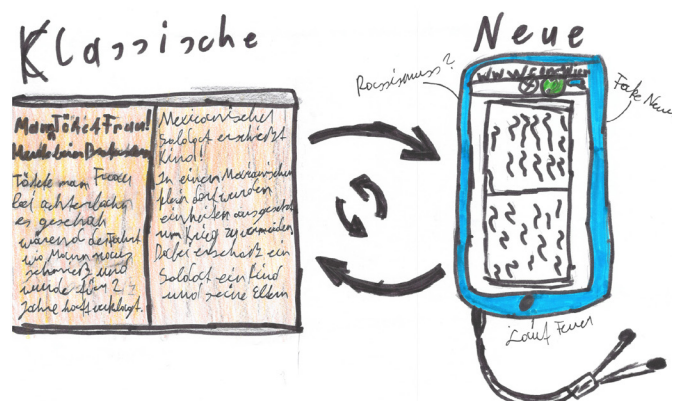 Klassische
Mann Tötet Frau!
Tötete man Frau
bei achterbahn
es geschah
wärend der Fahrt
wo Mann
und
wurde für 2
Jahre haft verklagt.
Mexicanischer
Soldat erschießt
Kind!
In einem Mexicanischen
klein dorf wurden
einheiten ausgesetzt
um Krieg zu vermeiden
Dabei erschießt ein
Soldat ein Kind
und seine Eltern
Neue
Rassismuss?
Fake New
Lauf Feuer